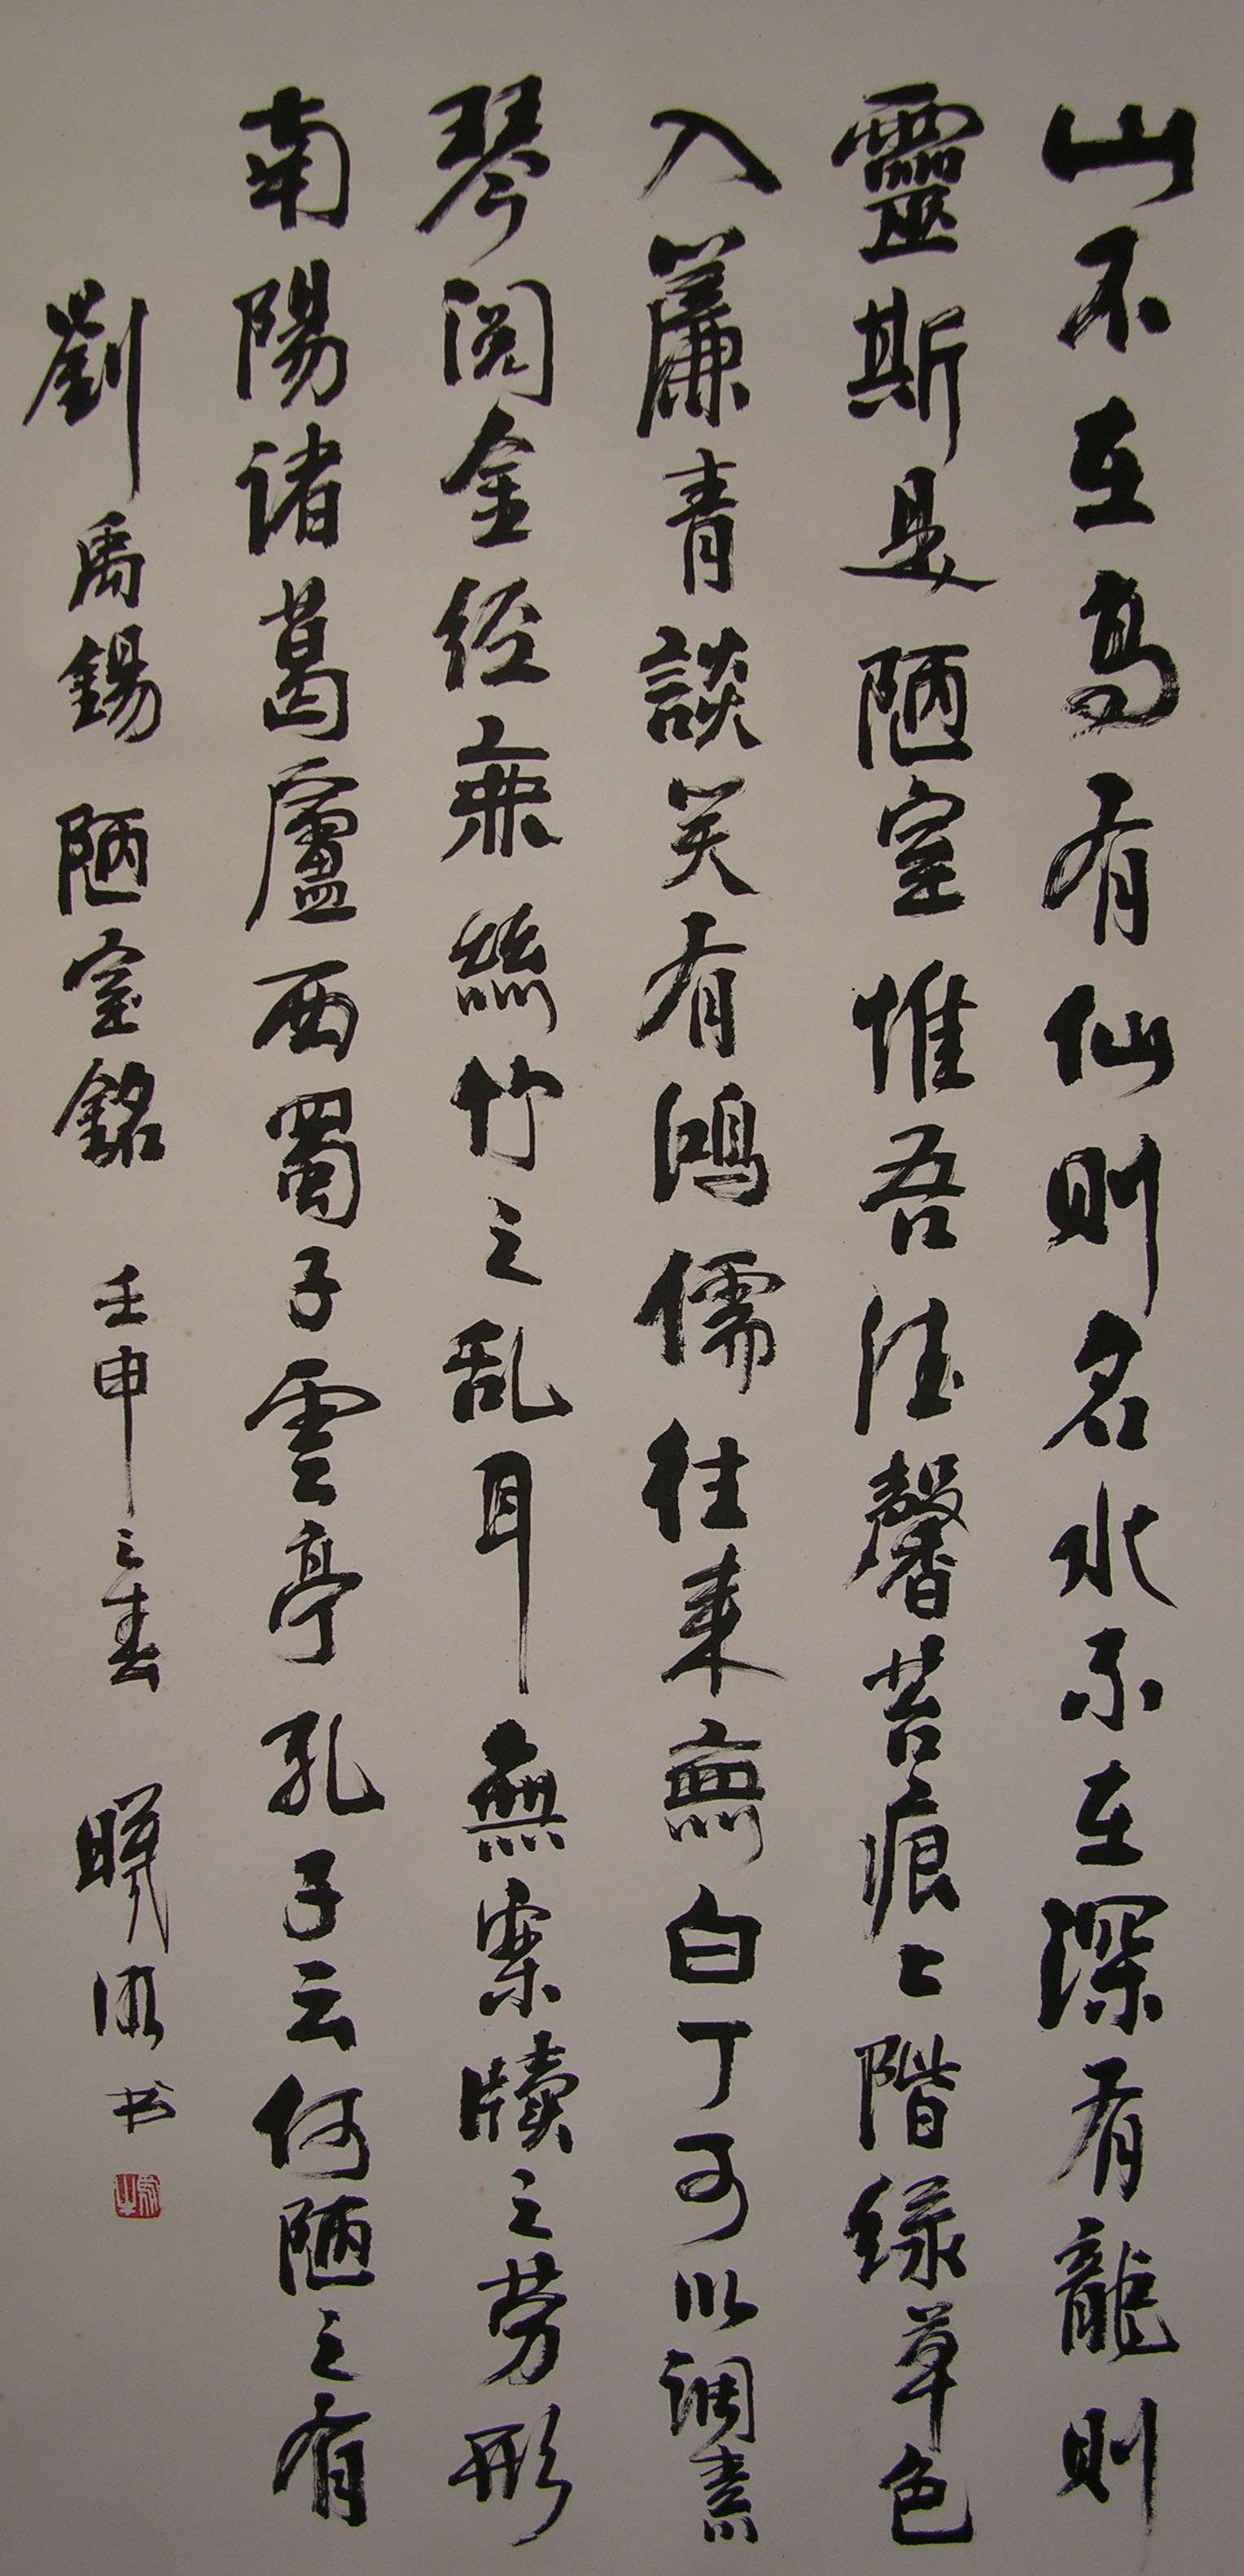 山不在高有仙则名水不在深有龍则
靈斯是陋室惟吾德馨苔痕上階緑草色
入簾青談笑有鴻儒往来無白丁可以調素
琴阅金经無絲竹之乱耳無案牘之劳形
南陽诸葛廬西蜀子雲亭孔子云何陋之有
劉禹錫 陋室銘 壬申之春 书